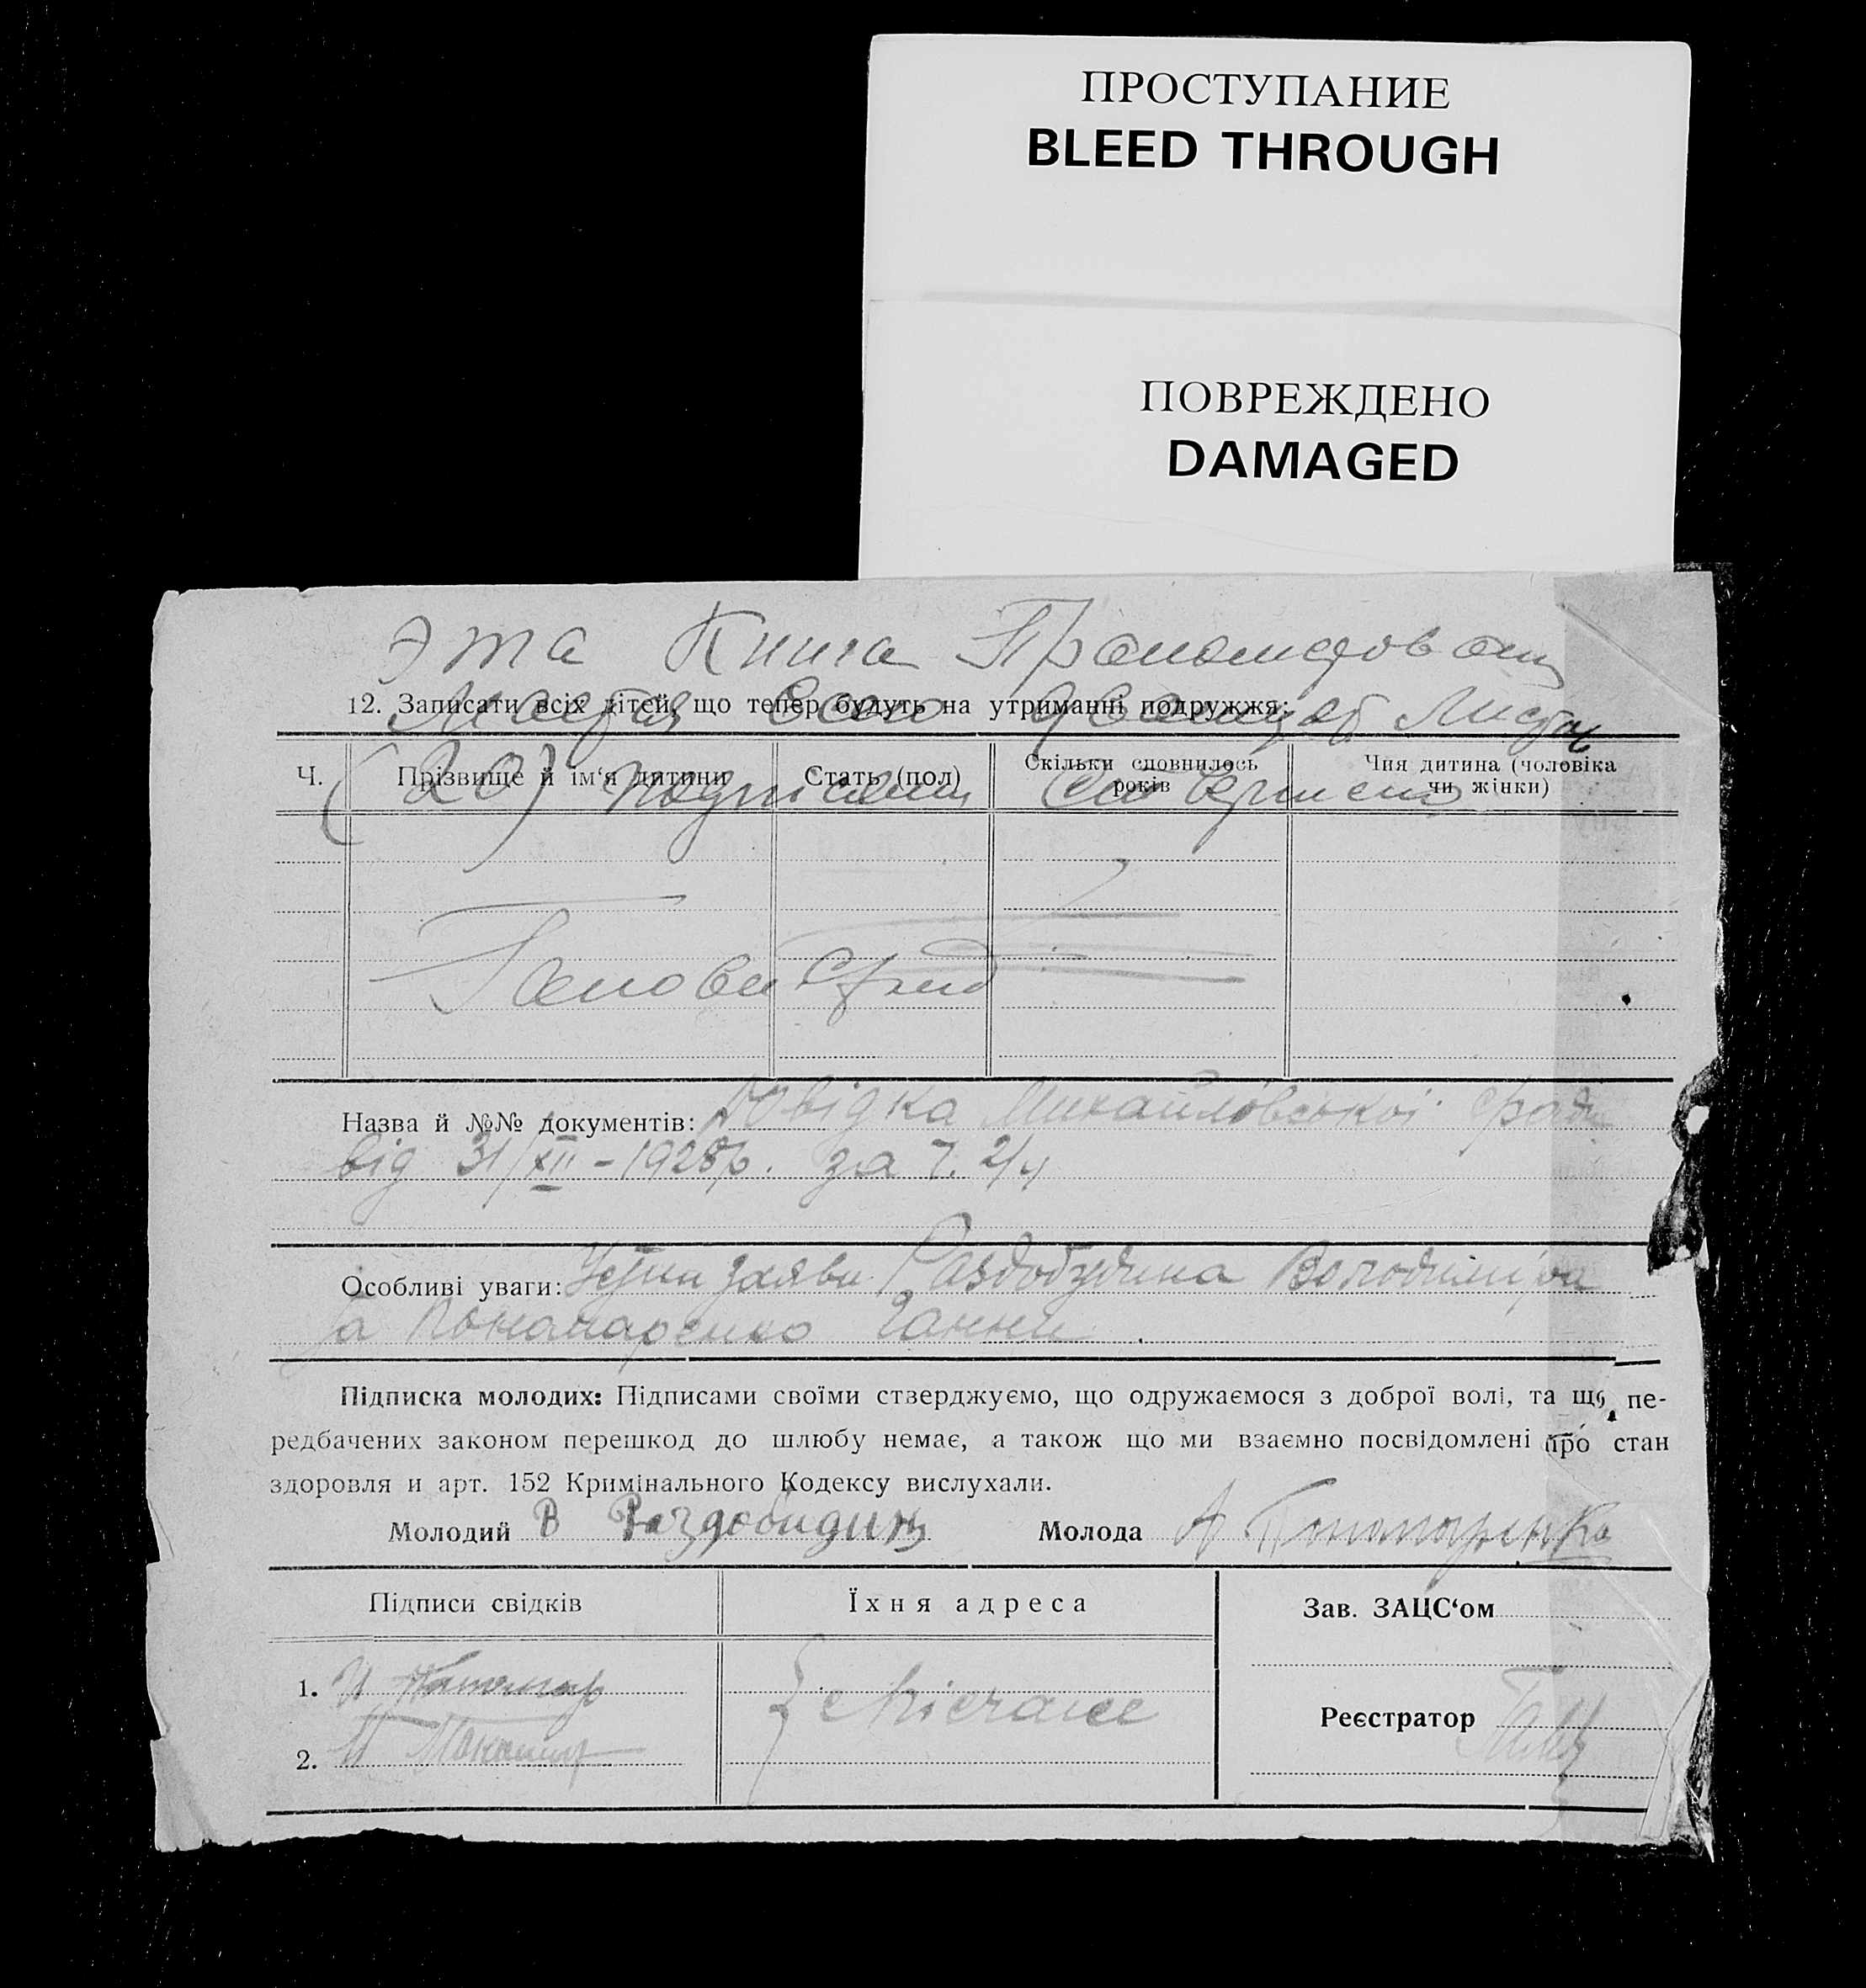 ПРОСТУПАНИЕ
BLEED THROUGH
ПОВРЕЖДЕНО
DAMAGED
Эта Книга
12. Записати всіх дітей, що тепер будуть на утриманні подружжя:
Листов
(20)
Ч.
Прізвище й ім‘я дитини
Стать (пол)
Скільки сповнилось
років
Чия дитина (чоловіка
чи жінки)
Назва й №№ документів: Довідка Михайлівської с/ради
від 31/XII – 1928р. за ч. 2/4
Особливі уваги: Усни заяви Раздобудина Володимира
та Пономаренко Ганни
Підписка молодих: Підписами своїми стверджуємо, що одружаємося з доброї волі, та що пе-
редбачених законом перешкод до шлюбу немає, а також що ми взаємно посвідомлені про стан
здоровля и арт. 152 Кримінального Кодексу вислухали.
Молодий В Раздобудин Молода А Пономаренко
Підписи свідків
Їхня адреса
Зав. ЗАЦС‘ом
1.
Реєстратор
2.